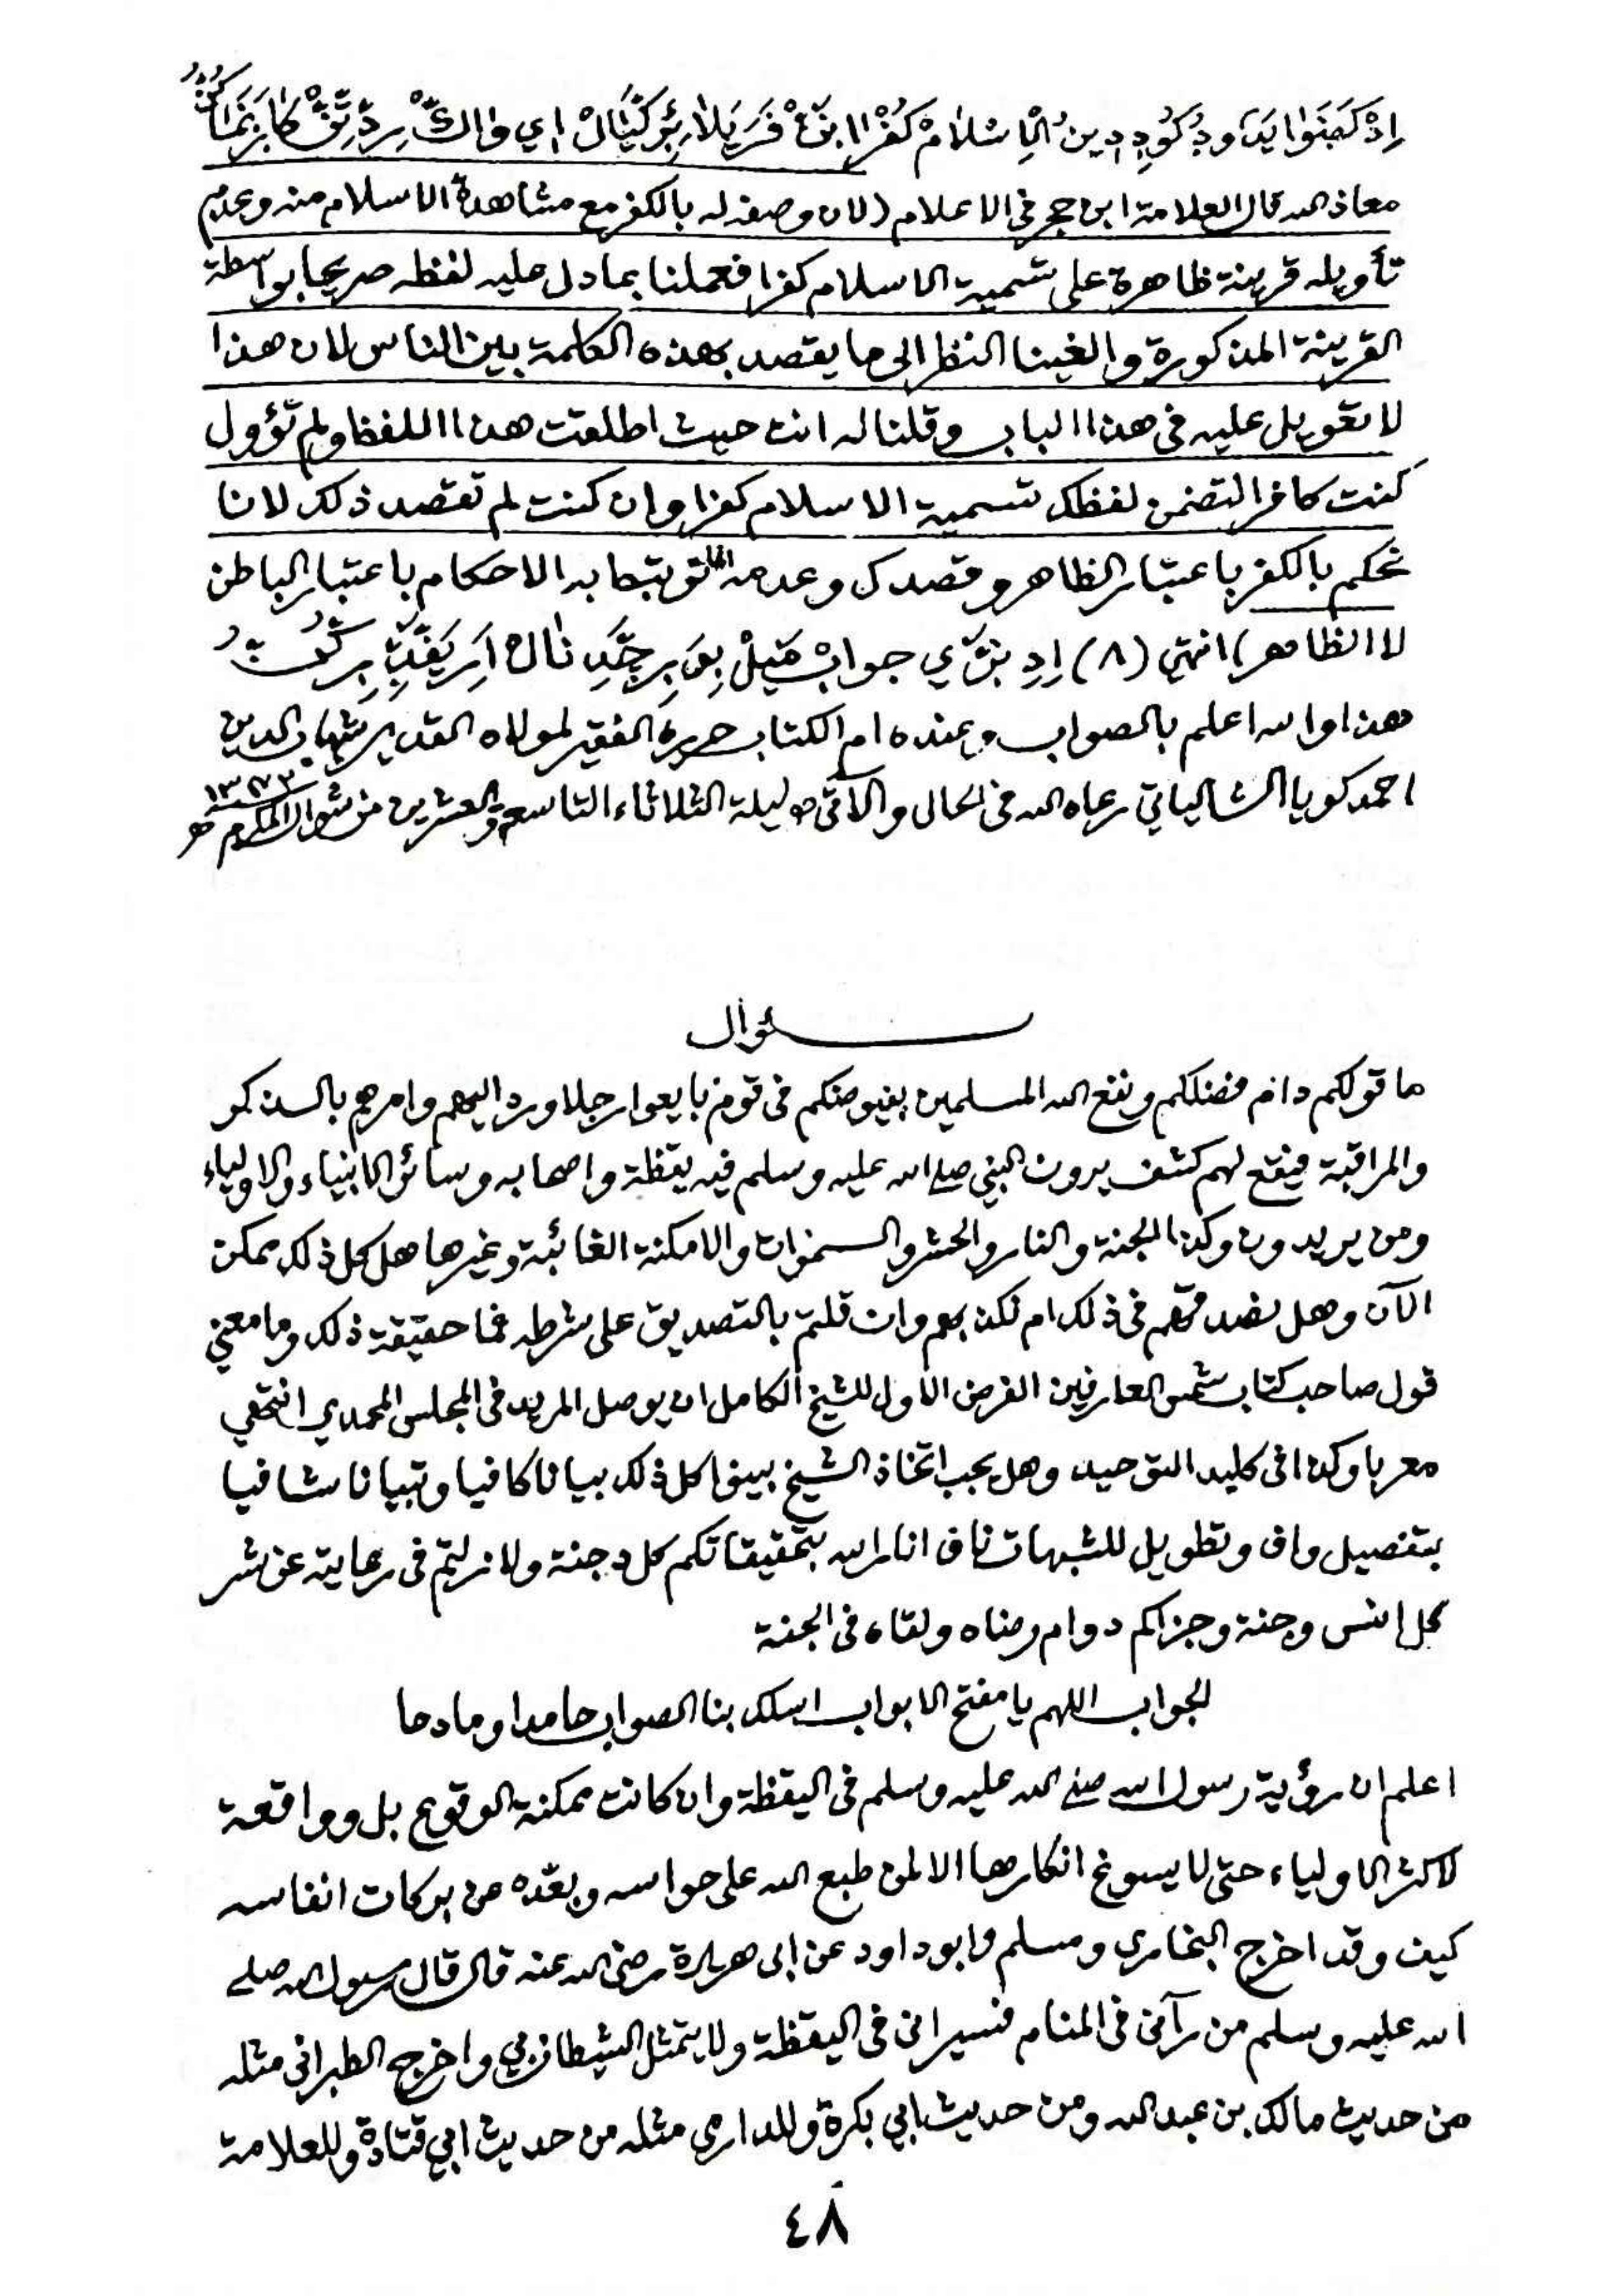 معاذ الله قال العلامة ابن حجر فى الاعلام (لان وصفه له بالكفر مع مشاهدة الاسلام منه وعدم
تأويله قرينة ظاهرة على تسمية الاسلام كفرا فعملنا بما دل عليه لفظه صريحا بواسطة
القرينة المذكورة والغينا النظر الى ما يقصد بهذه الكلمة بين الناس لان هذا
لا تعويل عليه فى هذا الباب وقلنا له انت حيث اطلقت هذا اللفظ ولم تؤول
كنت كافرا لتضمن لفظك تسمية الاسلام كفرا وان كنت لم تقصد ذلك لانا
نحكم بالكفر باعتبار الظاهر وقصدك وعدمه انما ترتبط به الاحكام باعتبار الباطن
لا الظاهر) انتهى (٨)
هذا والله اعلم بالصواب وعنده ام الكتاب حرره الفقير لمولاه القدير شهاب الدين
احمد كويا الشالياتي رعاه الله فى الحال والآتى ليلة الثلاثاء التاسع والعشرين من شوال المكرم ١٣٧٣ هـ
سئوال
ما قولكم دام فضلكم ونفع الله المسلمين بفيوضكم فى قوم بايعوا رجلا ورد اليهم وامرهم بالذكر
والمراقبة فيقع لهم كشف يرون النبي صلى الله عليه وسلم فيه يقظة واصحابه وسائر الانبياء والاولياء
ومن يريدون وكذا الجنة والنار والحشر والسموات والامكنة الغائبة وغيرها هل كل ذلك ممكن
الآن وهل نصدقهم فى ذلك ام نكذبهم وان قلتم بالتصديق على شرطه فما حقيقة ذلك وما معنى
قول صاحب كتاب شمس العارفين الفرض الاول للشيخ الكامل ان يوصل المريد فى المجلس المحمدي انتهى
معربا وكذا فى كليد التوحيد وهل يجب اتخاذ الشيخ بينوا كل ذلك بيانا كافيا وتبيانا شافيا
بتفصيل واف وتطويل للشبهات ناف انار الله بتحقيقاتكم كل دجنة ولا زلتم فى رعايته عن شر
كل انس وجنة وجزاكم دوام رضاه ولقاه فى الجنة
الجواب اللهم يا مفتح الابواب اسلك بنا الصواب حامدا ومادحا
اعلم ان رؤية رسول الله صلى الله عليه وسلم فى اليقظة وان كانت ممكنة الوقوع بل وواقعة
لاكثر الاولياء حتى لا يسوغ انكارها الا لمن طبع الله على حواسه وبعّده من بركات انفاسه
كيف وقد اخرج البخاري ومسلم وابو داود عن ابى هريرة رضى الله عنه قال قال رسول الله صلى
الله عليه وسلم من رآنى فى المنام فسيرانى فى اليقظة ولا يتمثل الشيطان بي واخرج الطبرانى مثله
من حديث مالك بن عبد الله ومن حديث ابي بكرة وللدارمى مثله من حديث ابي قتادة وللعلامة
٤٨